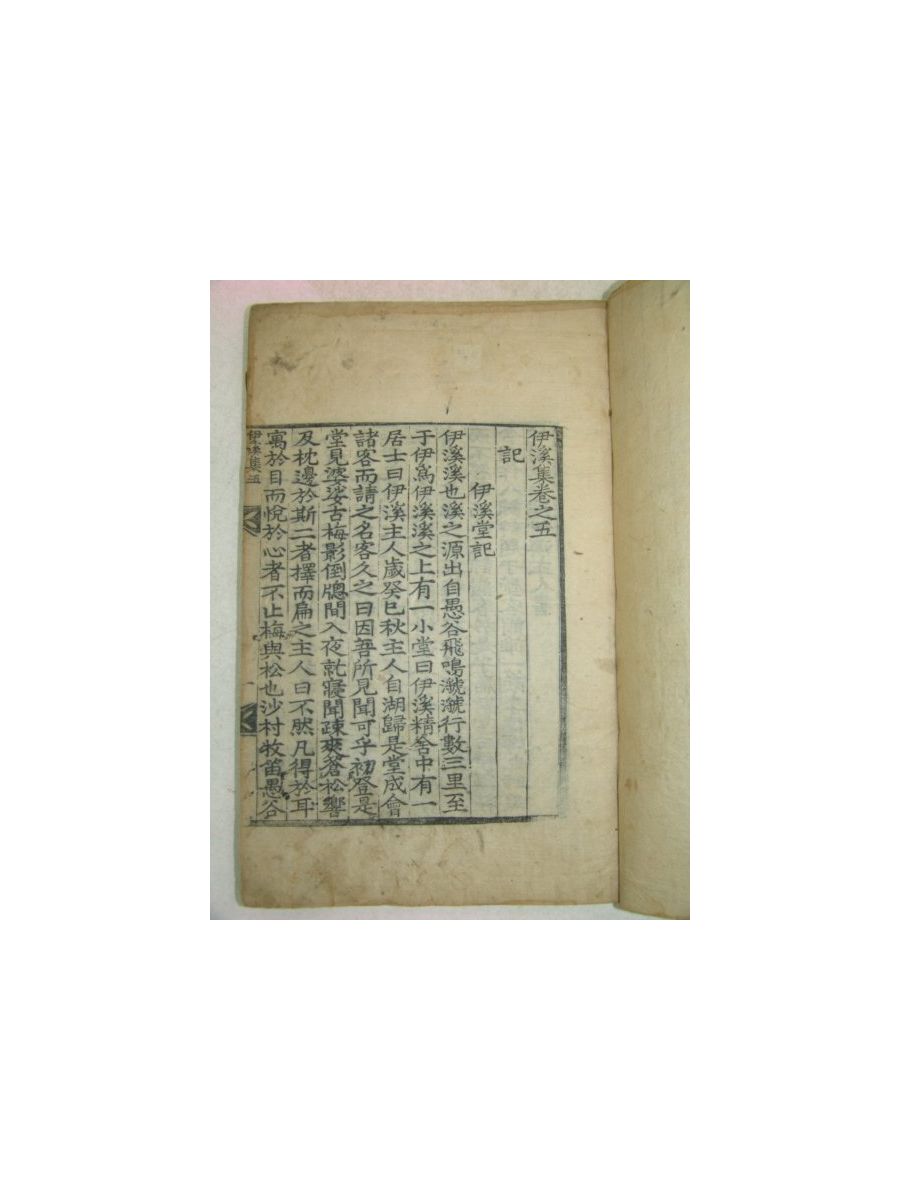 伊溪集卷之五
記
伊溪堂記
伊溪溪也溪之源出自愚谷飛鳴㶁㶁行數三里至
于伊爲伊溪溪之上有一小堂曰伊溪精舍中有一
居士曰伊溪主人歲癸巳秋主人自湖歸是堂成會
諸客而請之名客久之曰因吾所見聞可乎初登是
堂見婆娑古梅影倒牕間入夜就寢聞疎爽蒼松響
及枕邊於斯二者擇而扁之主人曰不然凡得於耳
寓於目而悅於心者不止梅與松也沙村牧笛愚谷
伊溪集五